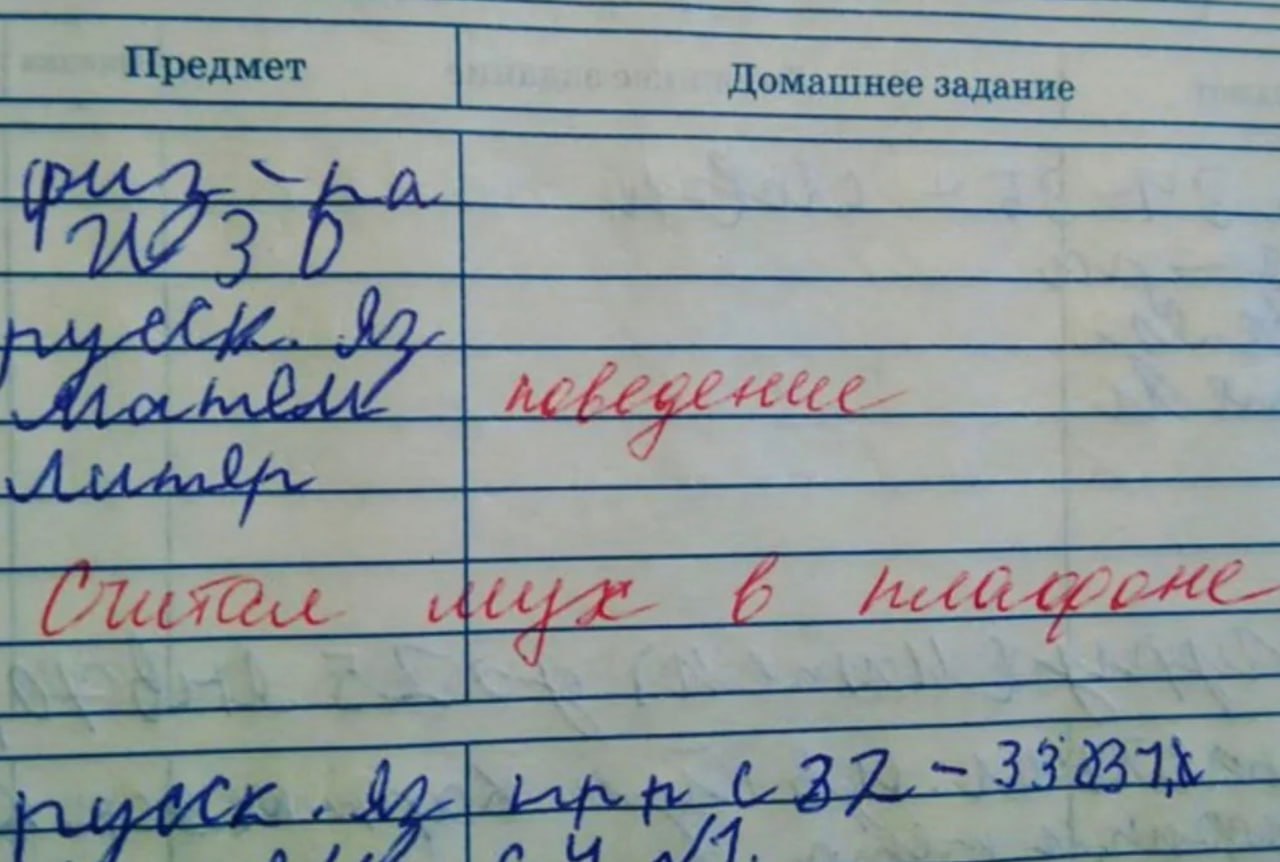 Предмет Домашнее задание
физ-ра
ИЗО
русск. яз
матем поведение
литер
Считал мух в плафоне
русск. яз прр с 32 - 33